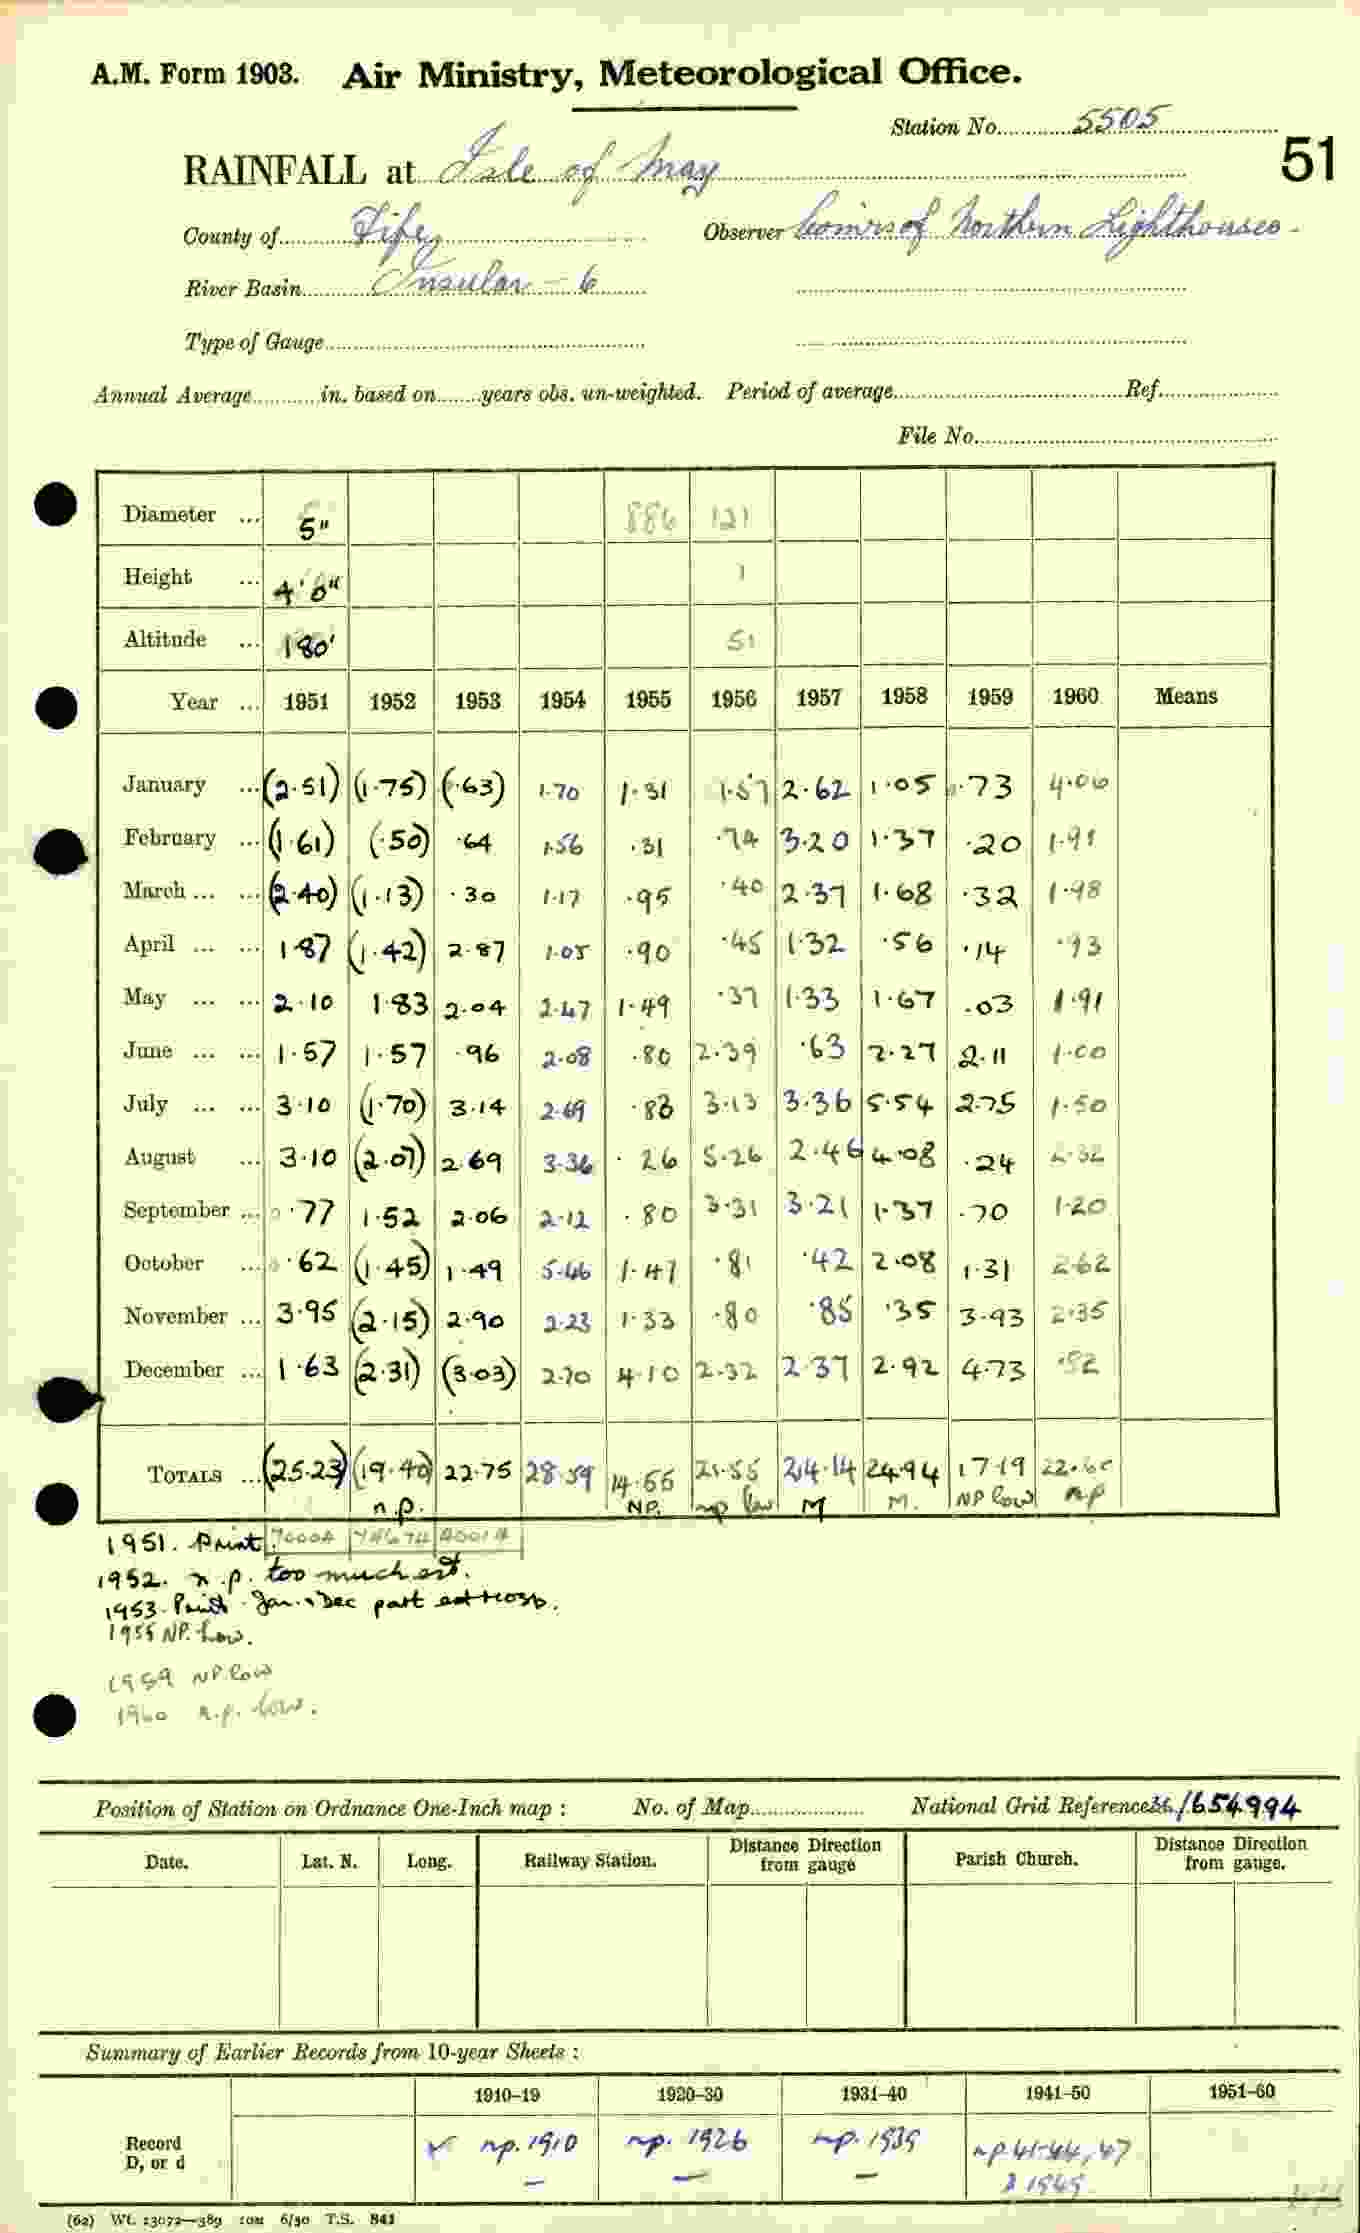 A.M. Form 1903. Air Ministry, Meteorological Office.
Station No. 5505
51
RAINFALL at Isle of May
County of Fife Observer Comrs of Northern Lighthouses
River Basin Insular - 6
Type of Gauge
Annual Average in. based on years obs. un-weighted. Period of average Ref.
File No.
Diameter ... 5" 886 121
Height ... 4' 0" 1
Altitude ... 180' 51
Year ... 1951 1952 1953 1954 1955 1956 1957 1958 1959 1960 Means
January ... (2.51) (1.75) (.63) 1.70 1.31 1.57 2.62 1.05 .73 4.06
February ... (1.61) (.50) .64 1.56 .31 .74 3.20 1.37 .20 1.91
March ... ... (2.40) (1.13) .30 1.17 .95 .40 2.37 1.68 .32 1.98
April ... ... 1.87 (1.42) 2.87 1.05 .90 .45 1.32 .56 .14 .93
May ... ... 2.10 1.83 2.04 2.47 1.49 .37 1.33 1.67 .03 1.91
June ... ... 1.57 1.57 .96 2.08 .80 2.39 .63 2.27 2.11 1.00
July ... ... 3.10 (1.70) 3.14 2.69 .83 3.13 3.36 5.54 2.75 1.50
August ... 3.10 (2.07) 2.69 3.36 .26 5.26 2.46 4.08 .24 2.32
September ... .77 1.52 2.06 2.12 .80 3.31 3.21 1.37 .70 1.20
October ... .62 (1.45) 1.49 5.46 1.47 .81 .42 2.08 1.31 2.62
November ... 3.95 (2.15) 2.90 2.23 1.33 .80 .85 .35 3.93 2.35
December ... 1.63 (2.31) (3.03) 2.70 4.10 2.32 2.37 2.92 4.73 .82
TOTALS ... (25.23) (19.40) 22.75 28.59 14.55 21.55 24.14 24.94 17.19 22.60
n.p. NP. np low M M. NP low np
1951. Print.
1952. n.p. too much est.
1953. Print. Jan. & Dec part
1955 NP. Low.
1959 NP low
1960 n.p. low.
Position of Station on Ordnance One-Inch map : No. of Map National Grid Reference 36/654994
Date. Lat. N. Long. Railway Station. Distance Direction from gauge Parish Church. Distance Direction from gauge.
Summary of Earlier Records from 10-year Sheets :
1910–19 1920–30 1931–40 1941–50 1951–60
Record D, or d ✓ np. 1910 np. 1926 np. 1939 np 41-44, 47
& 1949
(62) Wt. 23072—389 10M 6/50 T.S. 841